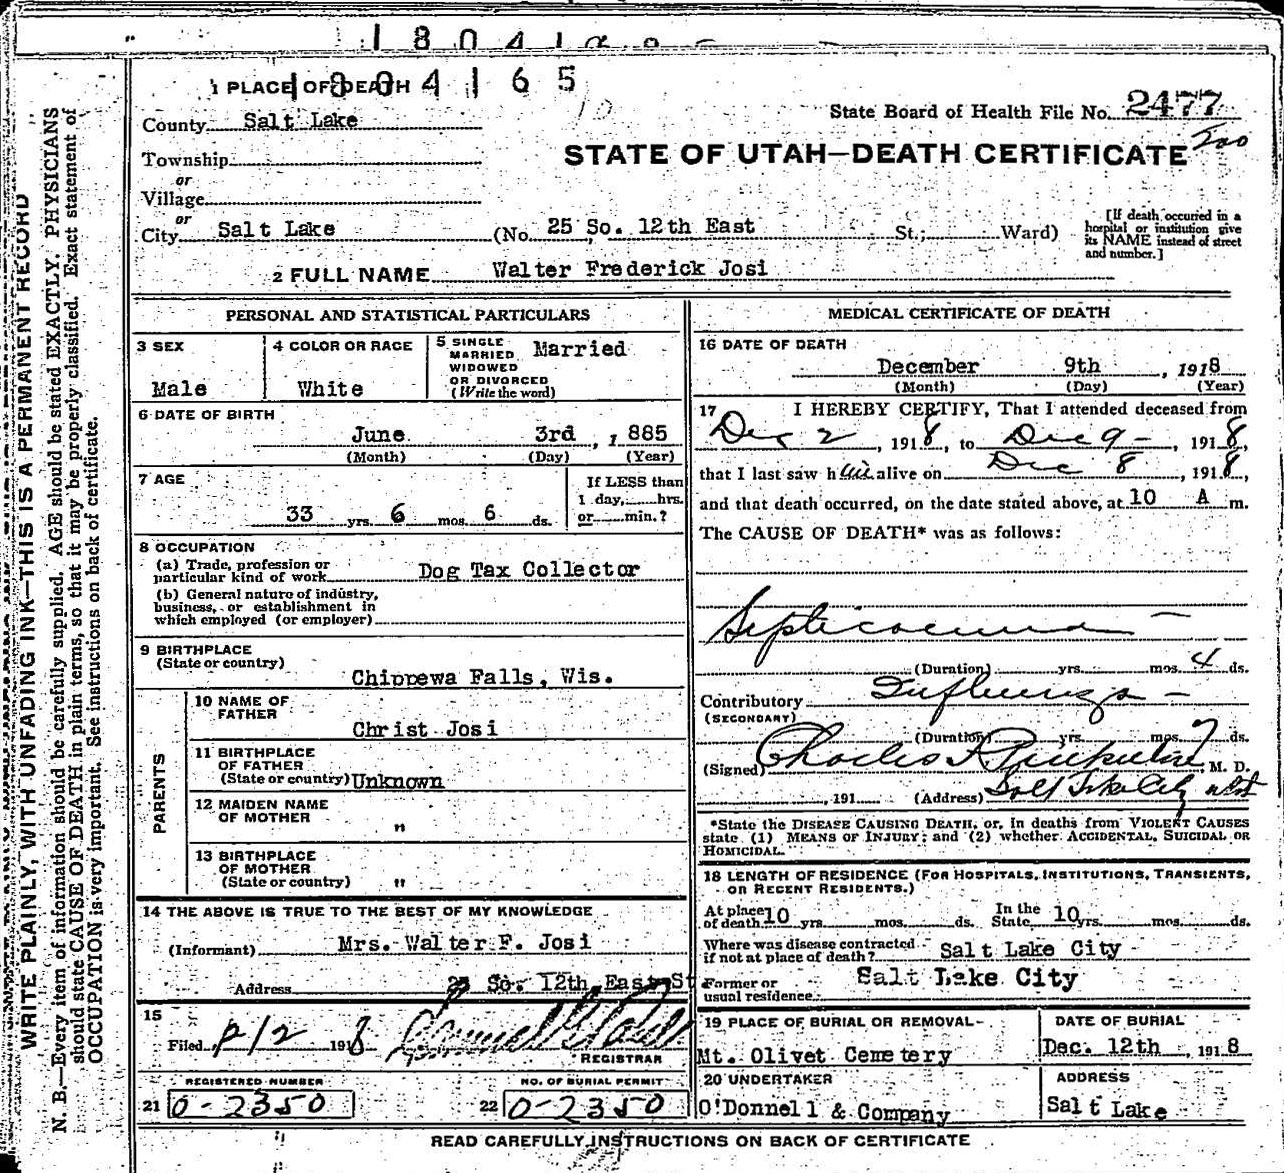 1804165
1 PLACE OF DEATH
State Board of Health File No. 2477
County Salt Lake
STATE OF UTAH—DEATH CERTIFICATE
Township
or
Village
or
City Salt Lake (No. 25 So. 12th East St.; Ward)
[If death occurred in a hospital or institution give its NAME instead of street and number.]
2 FULL NAME Walter Frederick Josi
PERSONAL AND STATISTICAL PARTICULARS
3 SEX
Male
4 COLOR OR RACE
White
5 SINGLE
MARRIED
WIDOWED
OR DIVORCED
(Write the word)
Married
6 DATE OF BIRTH
June 3rd, 1885
(Month) (Day) (Year)
7 AGE
33 yrs. 6 mos. 6 ds.
If LESS than
1 day, hrs.
or min.?
8 OCCUPATION
(a) Trade, profession or
particular kind of work Dog Tax Collector
(b) General nature of industry,
business, or establishment in
which employed (or employer)
9 BIRTHPLACE
(State or country)
Chippewa Falls, Wis.
PARENTS
10 NAME OF
FATHER
Christ Josi
11 BIRTHPLACE
OF FATHER
(State or country) Unknown
12 MAIDEN NAME
OF MOTHER "
13 BIRTHPLACE
OF MOTHER
(State or country) "
14 THE ABOVE IS TRUE TO THE BEST OF MY KNOWLEDGE
(Informant) Mrs. Walter F. Josi
Address 25 So. 12th East St
15
Filed 12/12 1918
REGISTRAR
REGISTERED NUMBER
21 0-2350
NO. OF BURIAL PERMIT
22 0-2350
MEDICAL CERTIFICATE OF DEATH
16 DATE OF DEATH
December 9th, 1918
(Month) (Day) (Year)
17 I HEREBY CERTIFY, That I attended deceased from
Dec 2, 1918, to Dec 9 -, 1918,
that I last saw him alive on Dec 8, 1918,
and that death occurred, on the date stated above, at 10 A m.
The CAUSE OF DEATH* was as follows:
Septicaemia -
(Duration) yrs. mos. 4 ds.
Contributory Influenza -
(SECONDARY)
(Duration) yrs. mos. 7 ds.
(Signed) Charles F M. D.
, 191 (Address) Salt Lake City Utah
*State the DISEASE CAUSING DEATH, or, in deaths from VIOLENT CAUSES
state (1) MEANS OF INJURY; and (2) whether ACCIDENTAL, SUICIDAL OR
HOMICIDAL.
18 LENGTH OF RESIDENCE (FOR HOSPITALS, INSTITUTIONS, TRANSIENTS,
OR RECENT RESIDENTS.)
At place
of death 10 yrs. mos. ds. In the
State 10 yrs. mos. ds.
Where was disease contracted
if not at place of death? Salt Lake City
Former or
usual residence Salt Lake City
19 PLACE OF BURIAL OR REMOVAL
Mt. Olivet Cemetery
DATE OF BURIAL
Dec. 12th, 1918
20 UNDERTAKER
O'Donnell & Company
ADDRESS
Salt Lake
READ CAREFULLY INSTRUCTIONS ON BACK OF CERTIFICATE
WRITE PLAINLY, WITH UNFADING INK—THIS IS A PERMANENT RECORD
N. B.—Every item of information should be carefully supplied. AGE should be stated EXACTLY. PHYSICIANS
should state CAUSE OF DEATH in plain terms, so that it may be properly classified. Exact statement of
OCCUPATION is very important. See instructions on back of certificate.